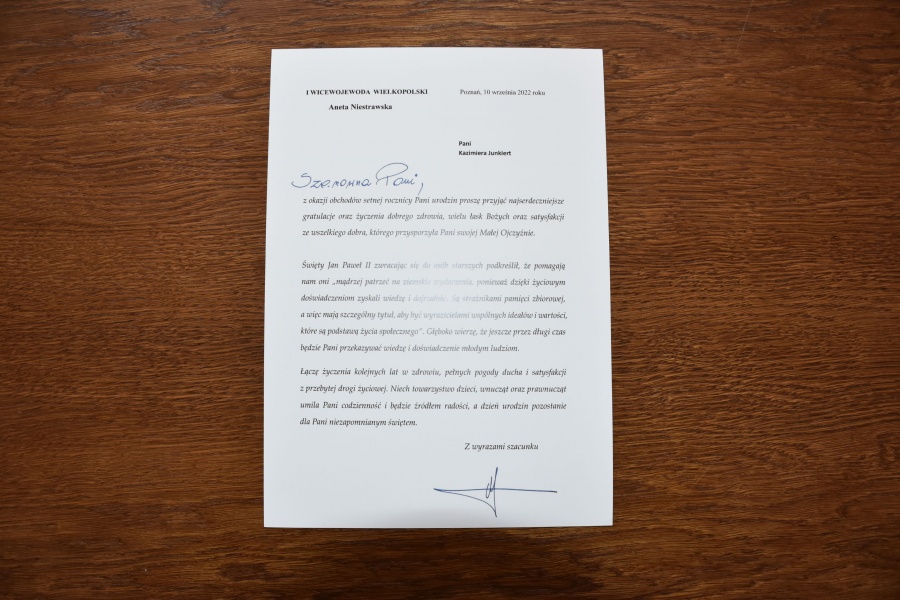 I WICEWOJEWODA WIELKOPOLSKI
Aneta Niestrawska
Poznań, 10 września 2022 roku
Pani
Kazimiera Junkiert
Szanowna Pani,
z okazji obchodów setnej rocznicy Pani urodzin proszę przyjąć najserdeczniejsze
gratulacje oraz życzenia dobrego zdrowia, wielu łask Bożych oraz satysfakcji
ze wszelkiego dobra, którego przysporzyła Pani swojej Małej Ojczyźnie.
Święty Jan Paweł II zwracając się do osób starszych podkreślił, że pomagają
nam oni „mądrzej patrzeć na ziemskie wydarzenia, ponieważ dzięki życiowym
doświadczeniom zyskali wiedzę i dojrzałość. Są strażnikami pamięci zbiorowej,
a więc mają szczególny tytuł, aby być wyrazicielami wspólnych ideałów i wartości,
które są podstawą życia społecznego”. Głęboko wierzę, że jeszcze przez długi czas
będzie Pani przekazywać wiedzę i doświadczenie młodym ludziom.
Łączę życzenia kolejnych lat w zdrowiu, pełnych pogody ducha i satysfakcji
z przebytej drogi życiowej. Niech towarzystwo dzieci, wnucząt oraz prawnucząt
umila Pani codzienność i będzie źródłem radości, a dzień urodzin pozostanie
dla Pani niezapomnianym świętem.
Z wyrazami szacunku